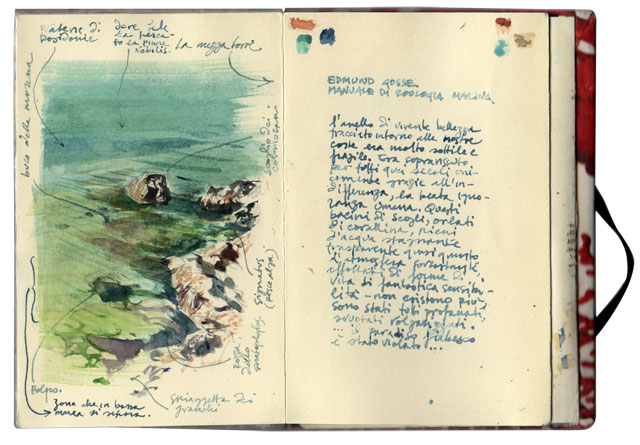 Praterie di
Posidonie
dove Lele
ha pesca-
to la Pinna
Nobilis.
La mezza torre
buco della murena
Scoglio dei
Sigmatus
(Pescanza)
pozza
dello
Spiaggetta dei
granchi
Polpo.
Zona che in bassa
marea si scopre.
EDMUND GOSSE
MANUALE DI ZOOLOGIA MARINA
l'anello di vivente bellezza
tracciato intorno alle nostre
coste era molto sottile e
fragile. Era sopravvissuto
per tutti quei secoli uni-
camente grazie all'in-
differenza, la beata igno-
ranza umana. Questi
bacini di scogli, orlati
di corallina, pieni
d'acqua stagnante
trasparente quasi quanto
l'atmosfera sovrastante,
affollati di forme di
vita di fantastica sensibi-
lità - non esistono più,
sono stati tutti profanati,
svuotati volgarizzati.
... il paradiso
è stato violato...